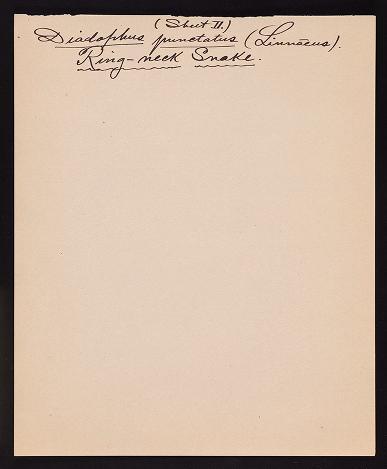 (Sheet II.)
Diadophus punctatus (Linnæus).
Ring-neck Snake.